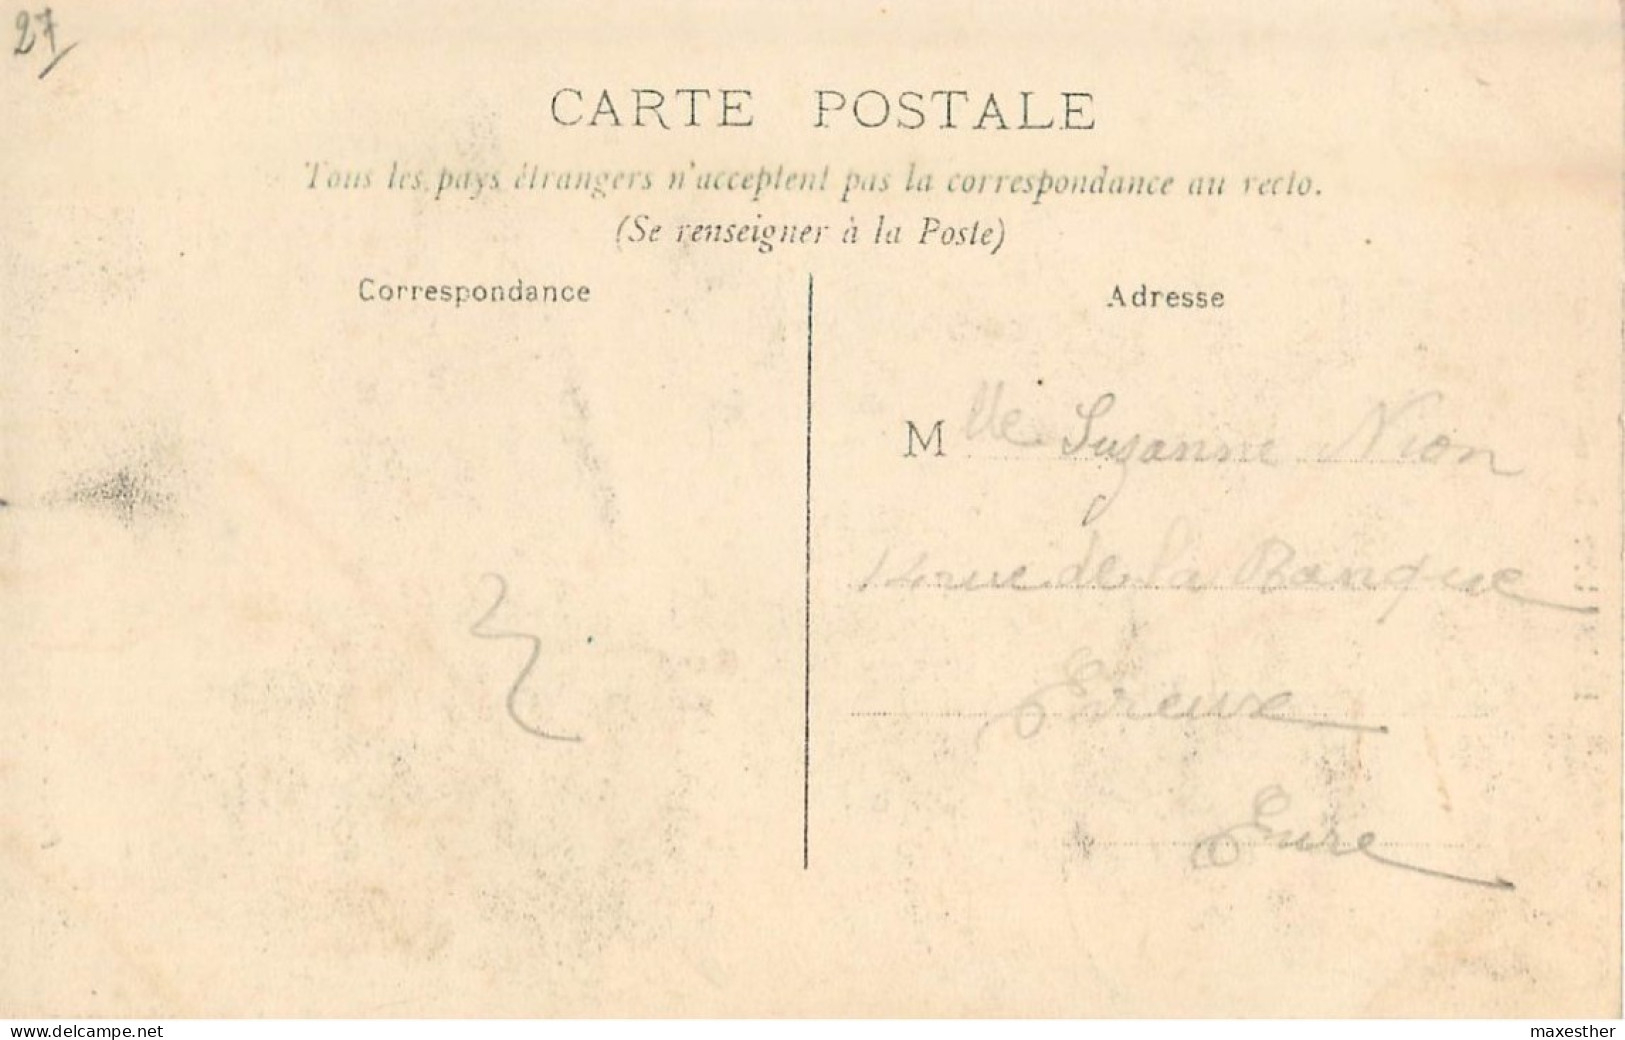 27
CARTE POSTALE
Tous les pays étrangers n'acceptent pas la correspondance au recto.
(Se renseigner à la Poste)
Correspondance
Adresse
Mlle Suzanne Nion
14 rue de la Banque
Evreux
Eure
www.delcampe.net
maxesther